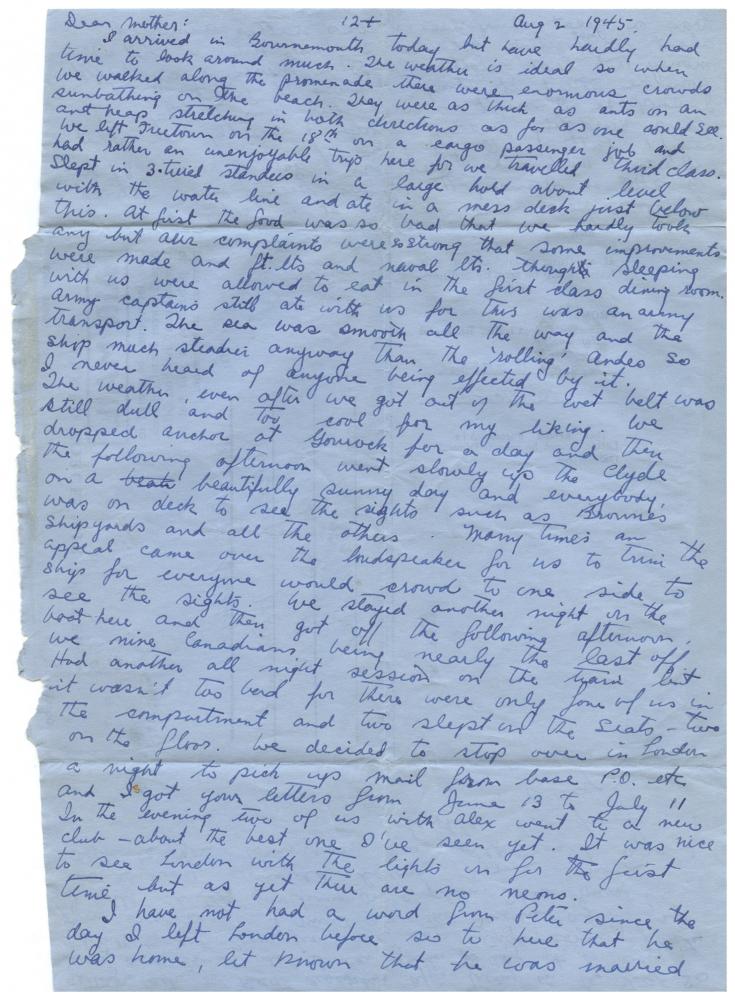 Dear Mother: 12+ Aug 2 1945.
I arrived in Bournemouth today but have hardly had
time to look around much. The weather is ideal so when
we walked along the promenade there were enormous crowds
sunbathing on the beach. They were as thick as ants on an
ant heap stretching in both directions as far as one could see.
We left Freetown on the 18th on a cargo passenger job and
had rather an unenjoyable trip here for we travelled third class.
Slept in 3-tiered standees in a large hold about level
with the water line and ate in a mess deck just below
this. At first the food was so bad that we hardly took
any but our complaints were so strong that some improvements
were made and ft. lts and naval lts. though sleeping
with us were allowed to eat in the first class dining room.
Army captains still ate with us for this was an army
transport. The sea was smooth all the way and the
ship much steadier anyway than the 'rolling' Andes so
I never heard of anyone being effected by it.
The weather, even after we got out of the wet belt was
still dull and too cool for my liking. We
dropped anchor at Gourock for a day and then
the following afternoon went slowly up the Clyde
on a beautifully sunny day and everybody
was on deck to see the sights such as Browne's
shipyards and all the others. Many times an
appeal came over the loudspeaker for us to trim the
ship for everyone would crowd to one side to
see the sights. We stayed another night on the
boat here and then got off the following afternoon,
we nine Canadians, being nearly the last off.
Had another all night session on the train but
it wasn't too bad for there were only four of us in
the compartment and two slept on the seats - two
on the floor. We decided to stop over in London
a night to pick up mail from base P.O. etc
and I got your letters from June 13 to July 11
In the evening two of us with Alex went to a new
club - about the best one I've seen yet. It was nice
to see London with the lights on for the first
time but as yet there are no neons.
I have not had a word from Peter since the
day I left London before so to hear that he
was home, let known that he was married